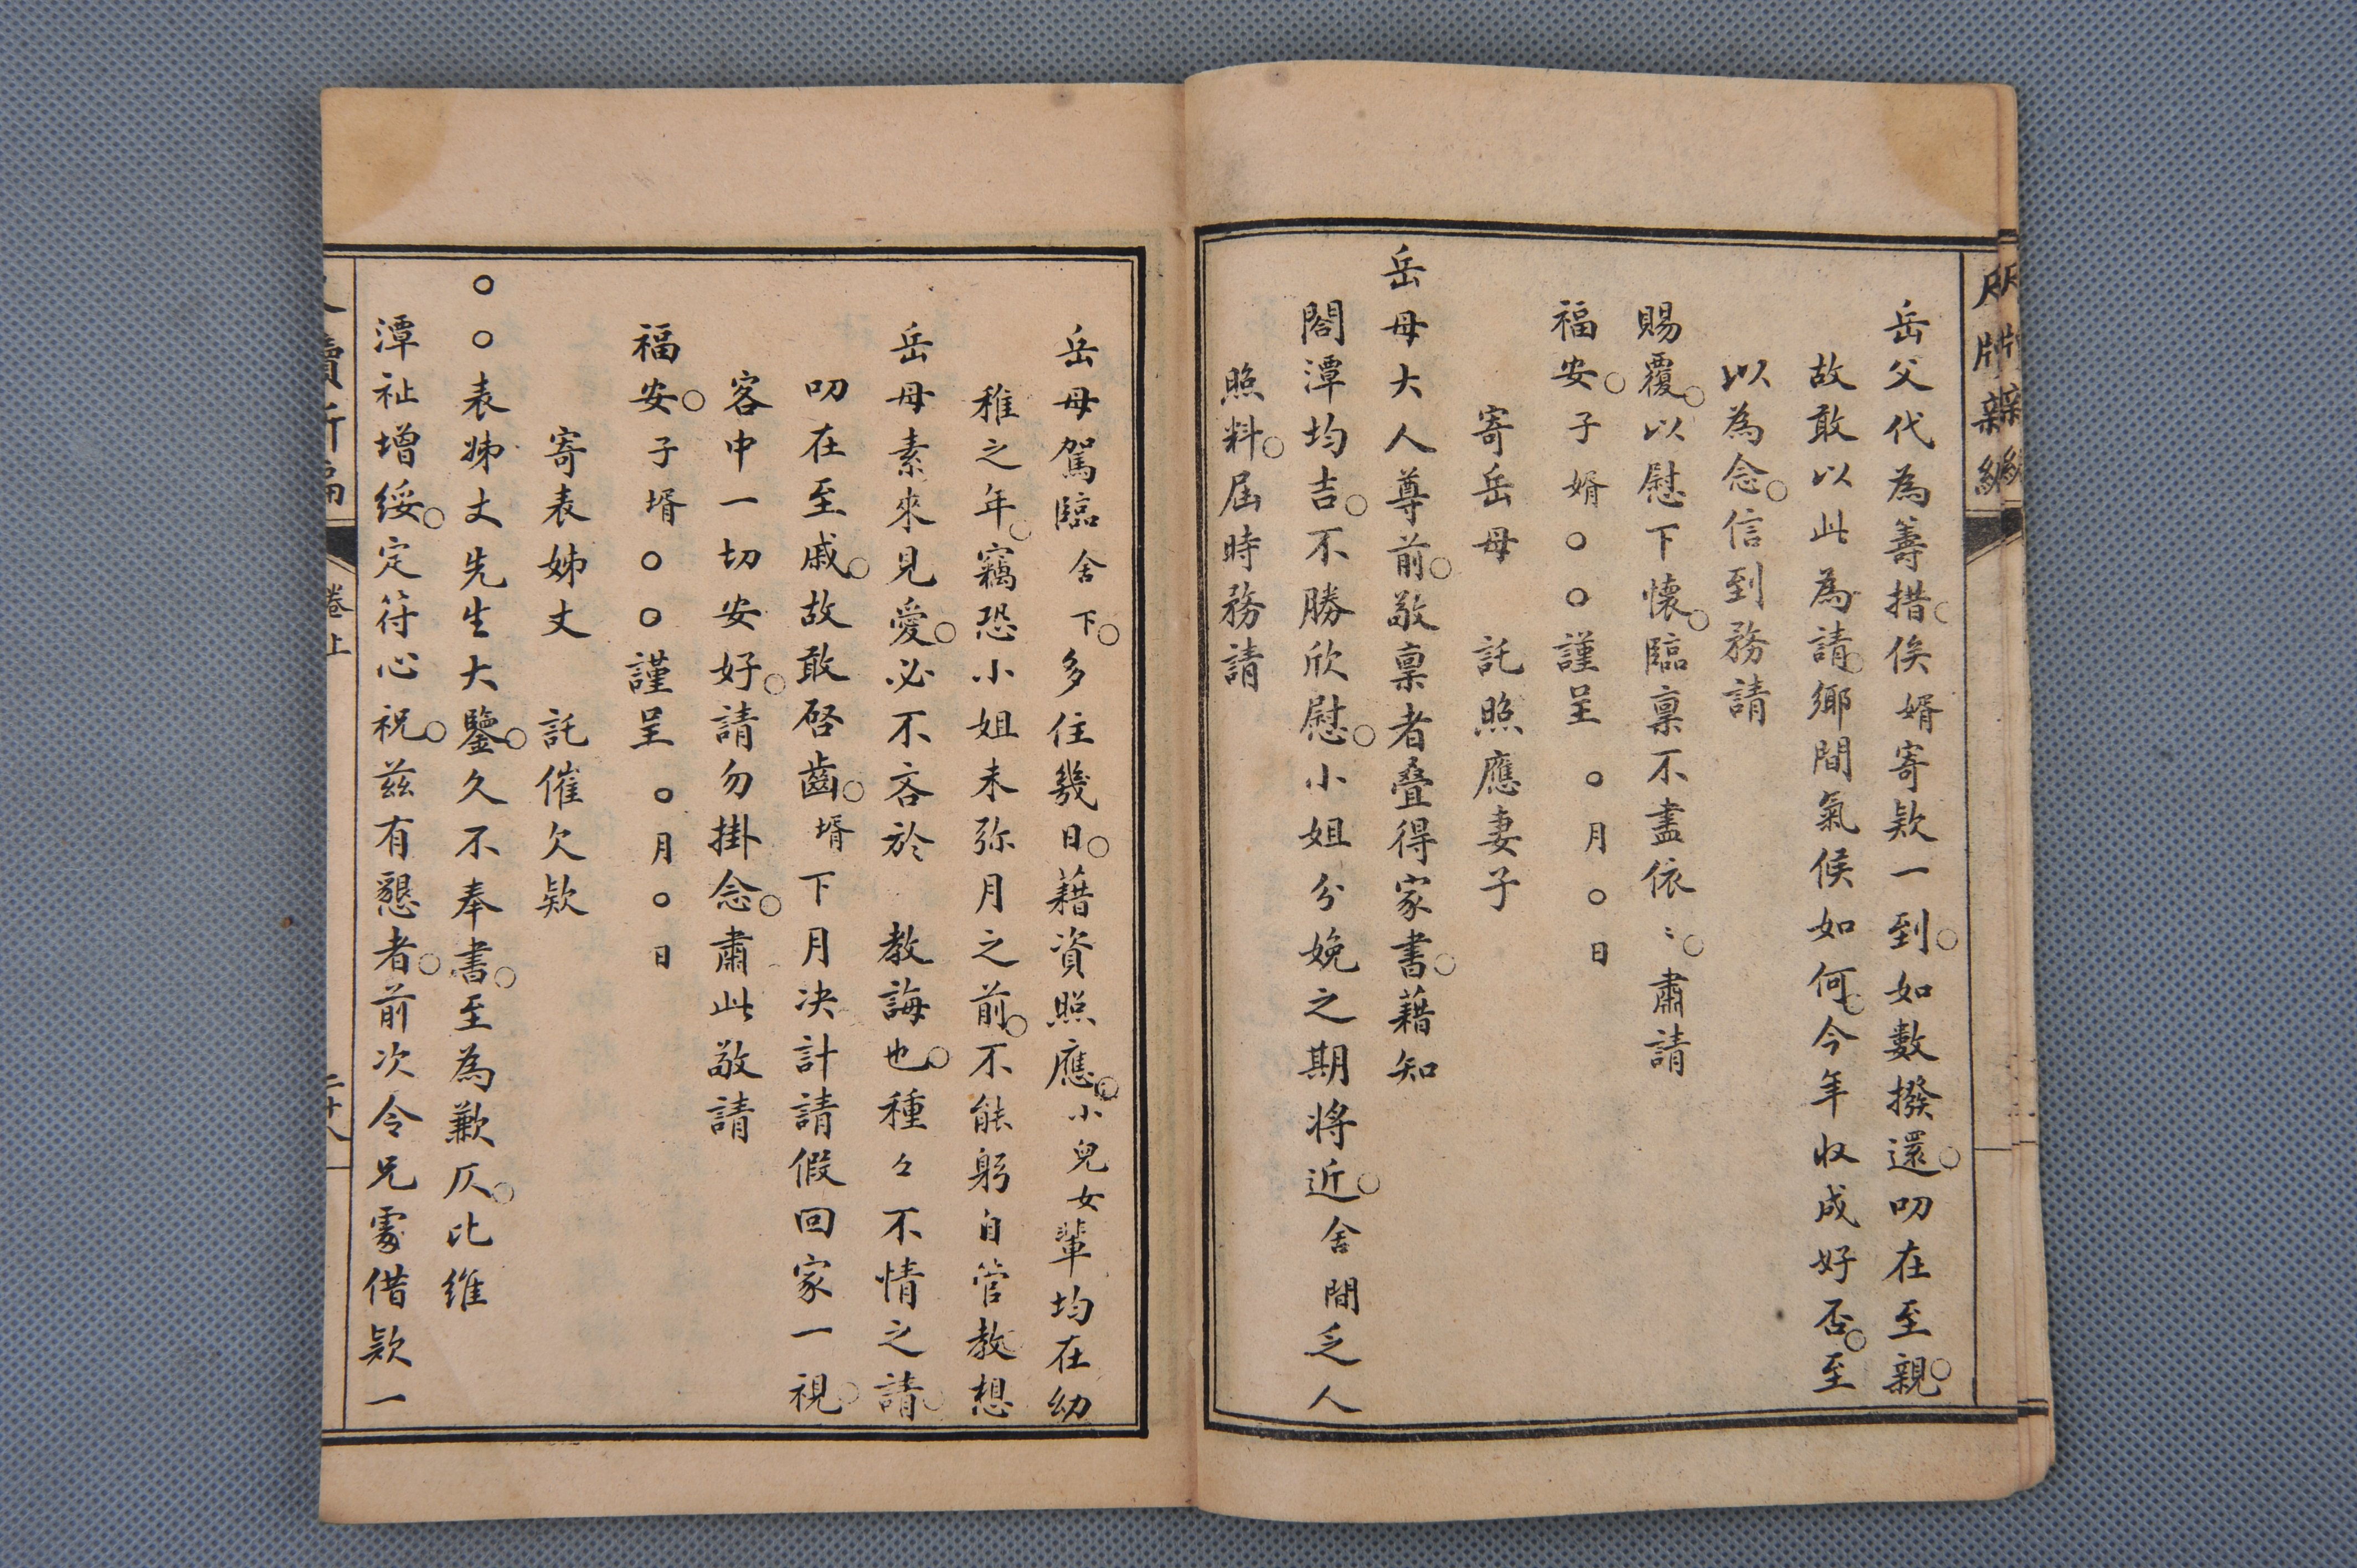 岳父代為籌措○俟婿寄欵一到○如數撥還○叨在至親○
故敢以此為請○鄉間氣候如何○今年收成好否○至
以為念○信到務請
賜覆○以慰下懷○臨稟不盡依〻○肅請
福安○子婿○○謹呈　○月○日
寄岳母　託照應妻子
岳母大人尊前○敬稟者叠得家書○藉知
閤潭均吉○不勝欣慰○小姐分娩之期將近○舍間乏人
照料○屆時務請
岳母駕臨舍下○多住幾日○藉資照應○小兒女輩均在幼
稚之年○竊恐小姐未弥月之前○不能躬自管教想
岳母素來見愛○必不吝於　教誨也○種々不情之請○
叨在至戚○故敢啓齒○壻下月决計請假回家一視○
客中一切安好○請勿掛念○肅此敬請
福安○子壻○○謹呈　○月○日
寄表姊丈　託催欠欵
○○表姊丈先生大鑒○久不奉書○至為歉仄○比維
潭祉增綏○定符心祝○茲有懇者○前次令兄處借欵一
卷上
二十八